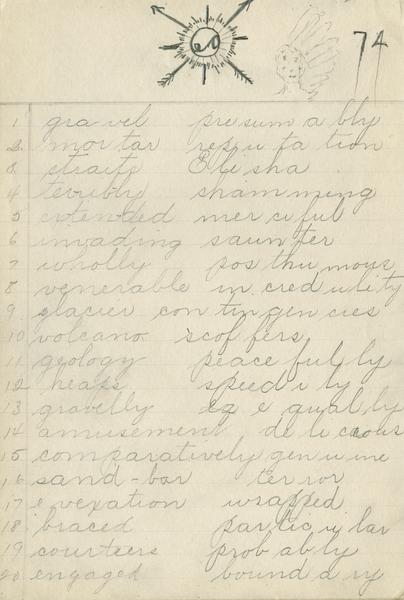 74
1 gravel presumably
2. mortar reputation
3. straits Elisha
4 terribly shamming
5 extended merciful
6 invading saunter
7 wholly posthumous
8 venerable incredulity
9. glacier contingencies
10 volcano scoffers
11 geology peacefully
12 heaps speedily
13 gravelly equally
14 amusement delicious
15 comparatively genuine
16 sand-bar terror
17 vexation wrapped
18 braced particular
19 courteers probably
20 engaged boundary